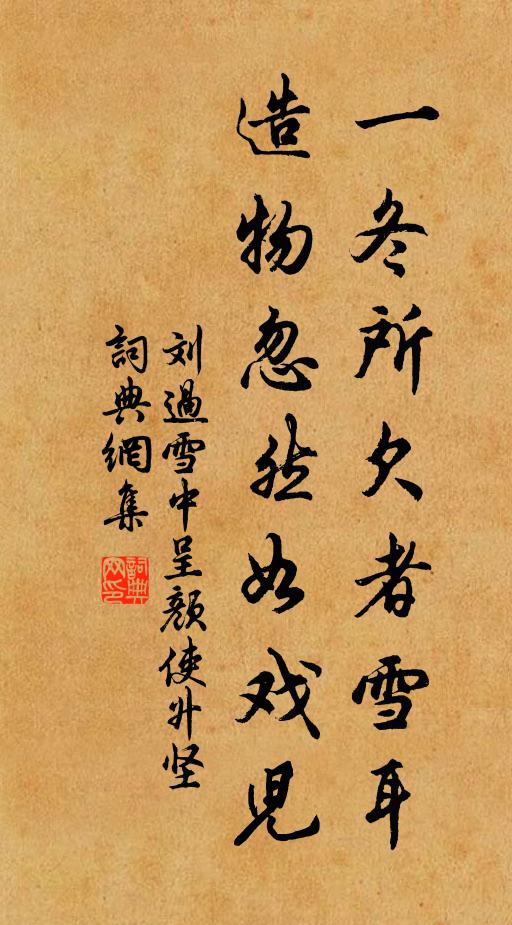 一冬所欠者雪耳
造物忽然如戏兒
刘過雪中呈顏使廾坚
詞典網集
詞典网印